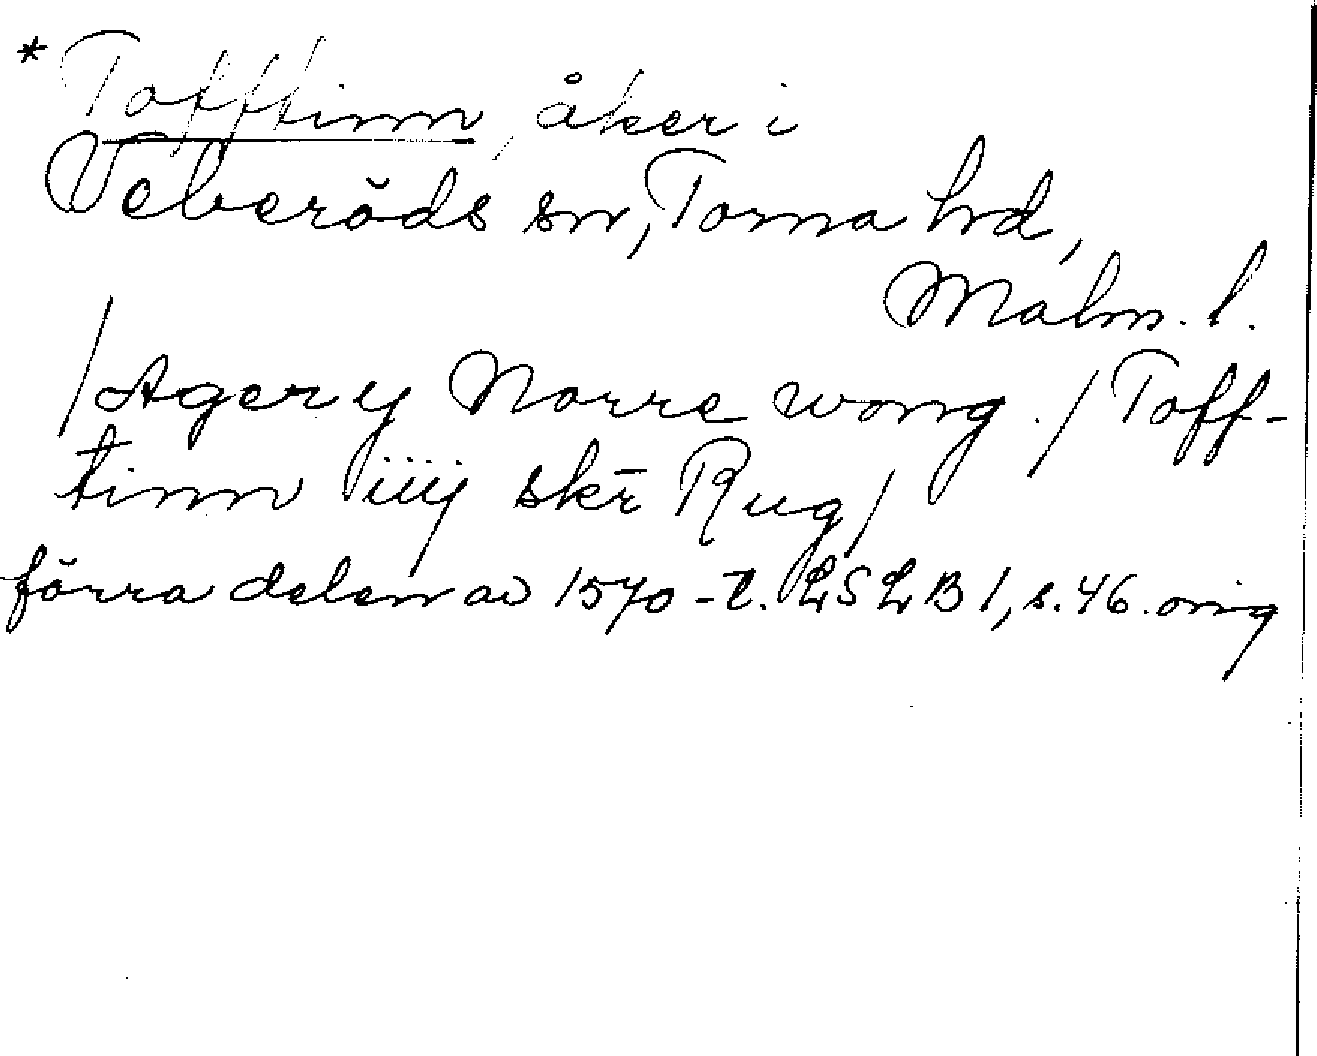 * Tofftinn, åker i
Veberöds sn, Torna hd,
Malm. l.
/Ager y Norre wong./Toff-
tinn iiij skr̄ Rug/
förra delen av 1570-t. LSLB 1, s. 46. orig